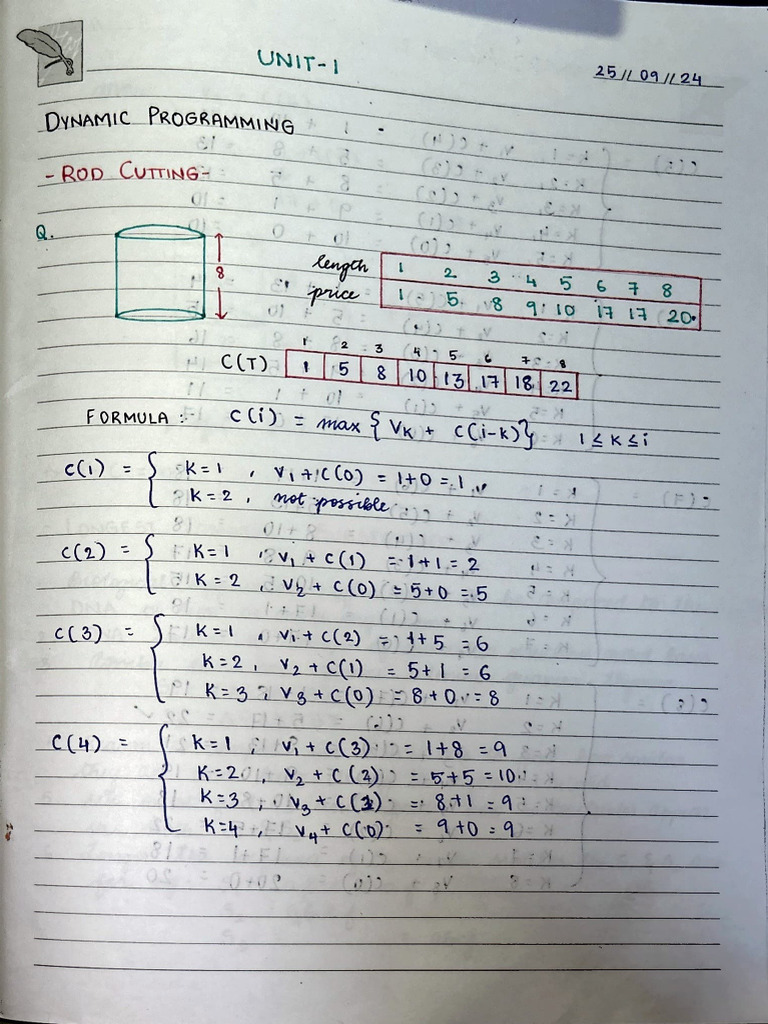 UNIT-1
25//09//24
DYNAMIC PROGRAMMING
-ROD CUTTING-
Q.
8
length 1 2 3 4 5 6 7 8
price 1 5 8 9 10 17 17 20
1 2 3 4 5 6 7 8
C(T) 1 5 8 10 13 17 18 22
FORMULA : C(i) = max { VK + C(i-k)} 1 ≤ K ≤ i
C(1) = { K=1 , V1 + C(0) = 1+0 = 1
K=2 , not possible
C(2) = { K=1 , V1 + C(1) = 1+1 = 2
K=2 , V2 + C(0) = 5+0 = 5
C(3) = { K=1 , V1 + C(2) = 1+5 = 6
K=2 , V2 + C(1) = 5+1 = 6
K=3 , V3 + C(0) = 8+0 = 8
C(4) = { K=1 , V1 + C(3) = 1+8 = 9
K=2 , V2 + C(2) = 5+5 = 10
K=3 , V3 + C(1) = 8+1 = 9
K=4 , V4 + C(0) = 9+0 = 9